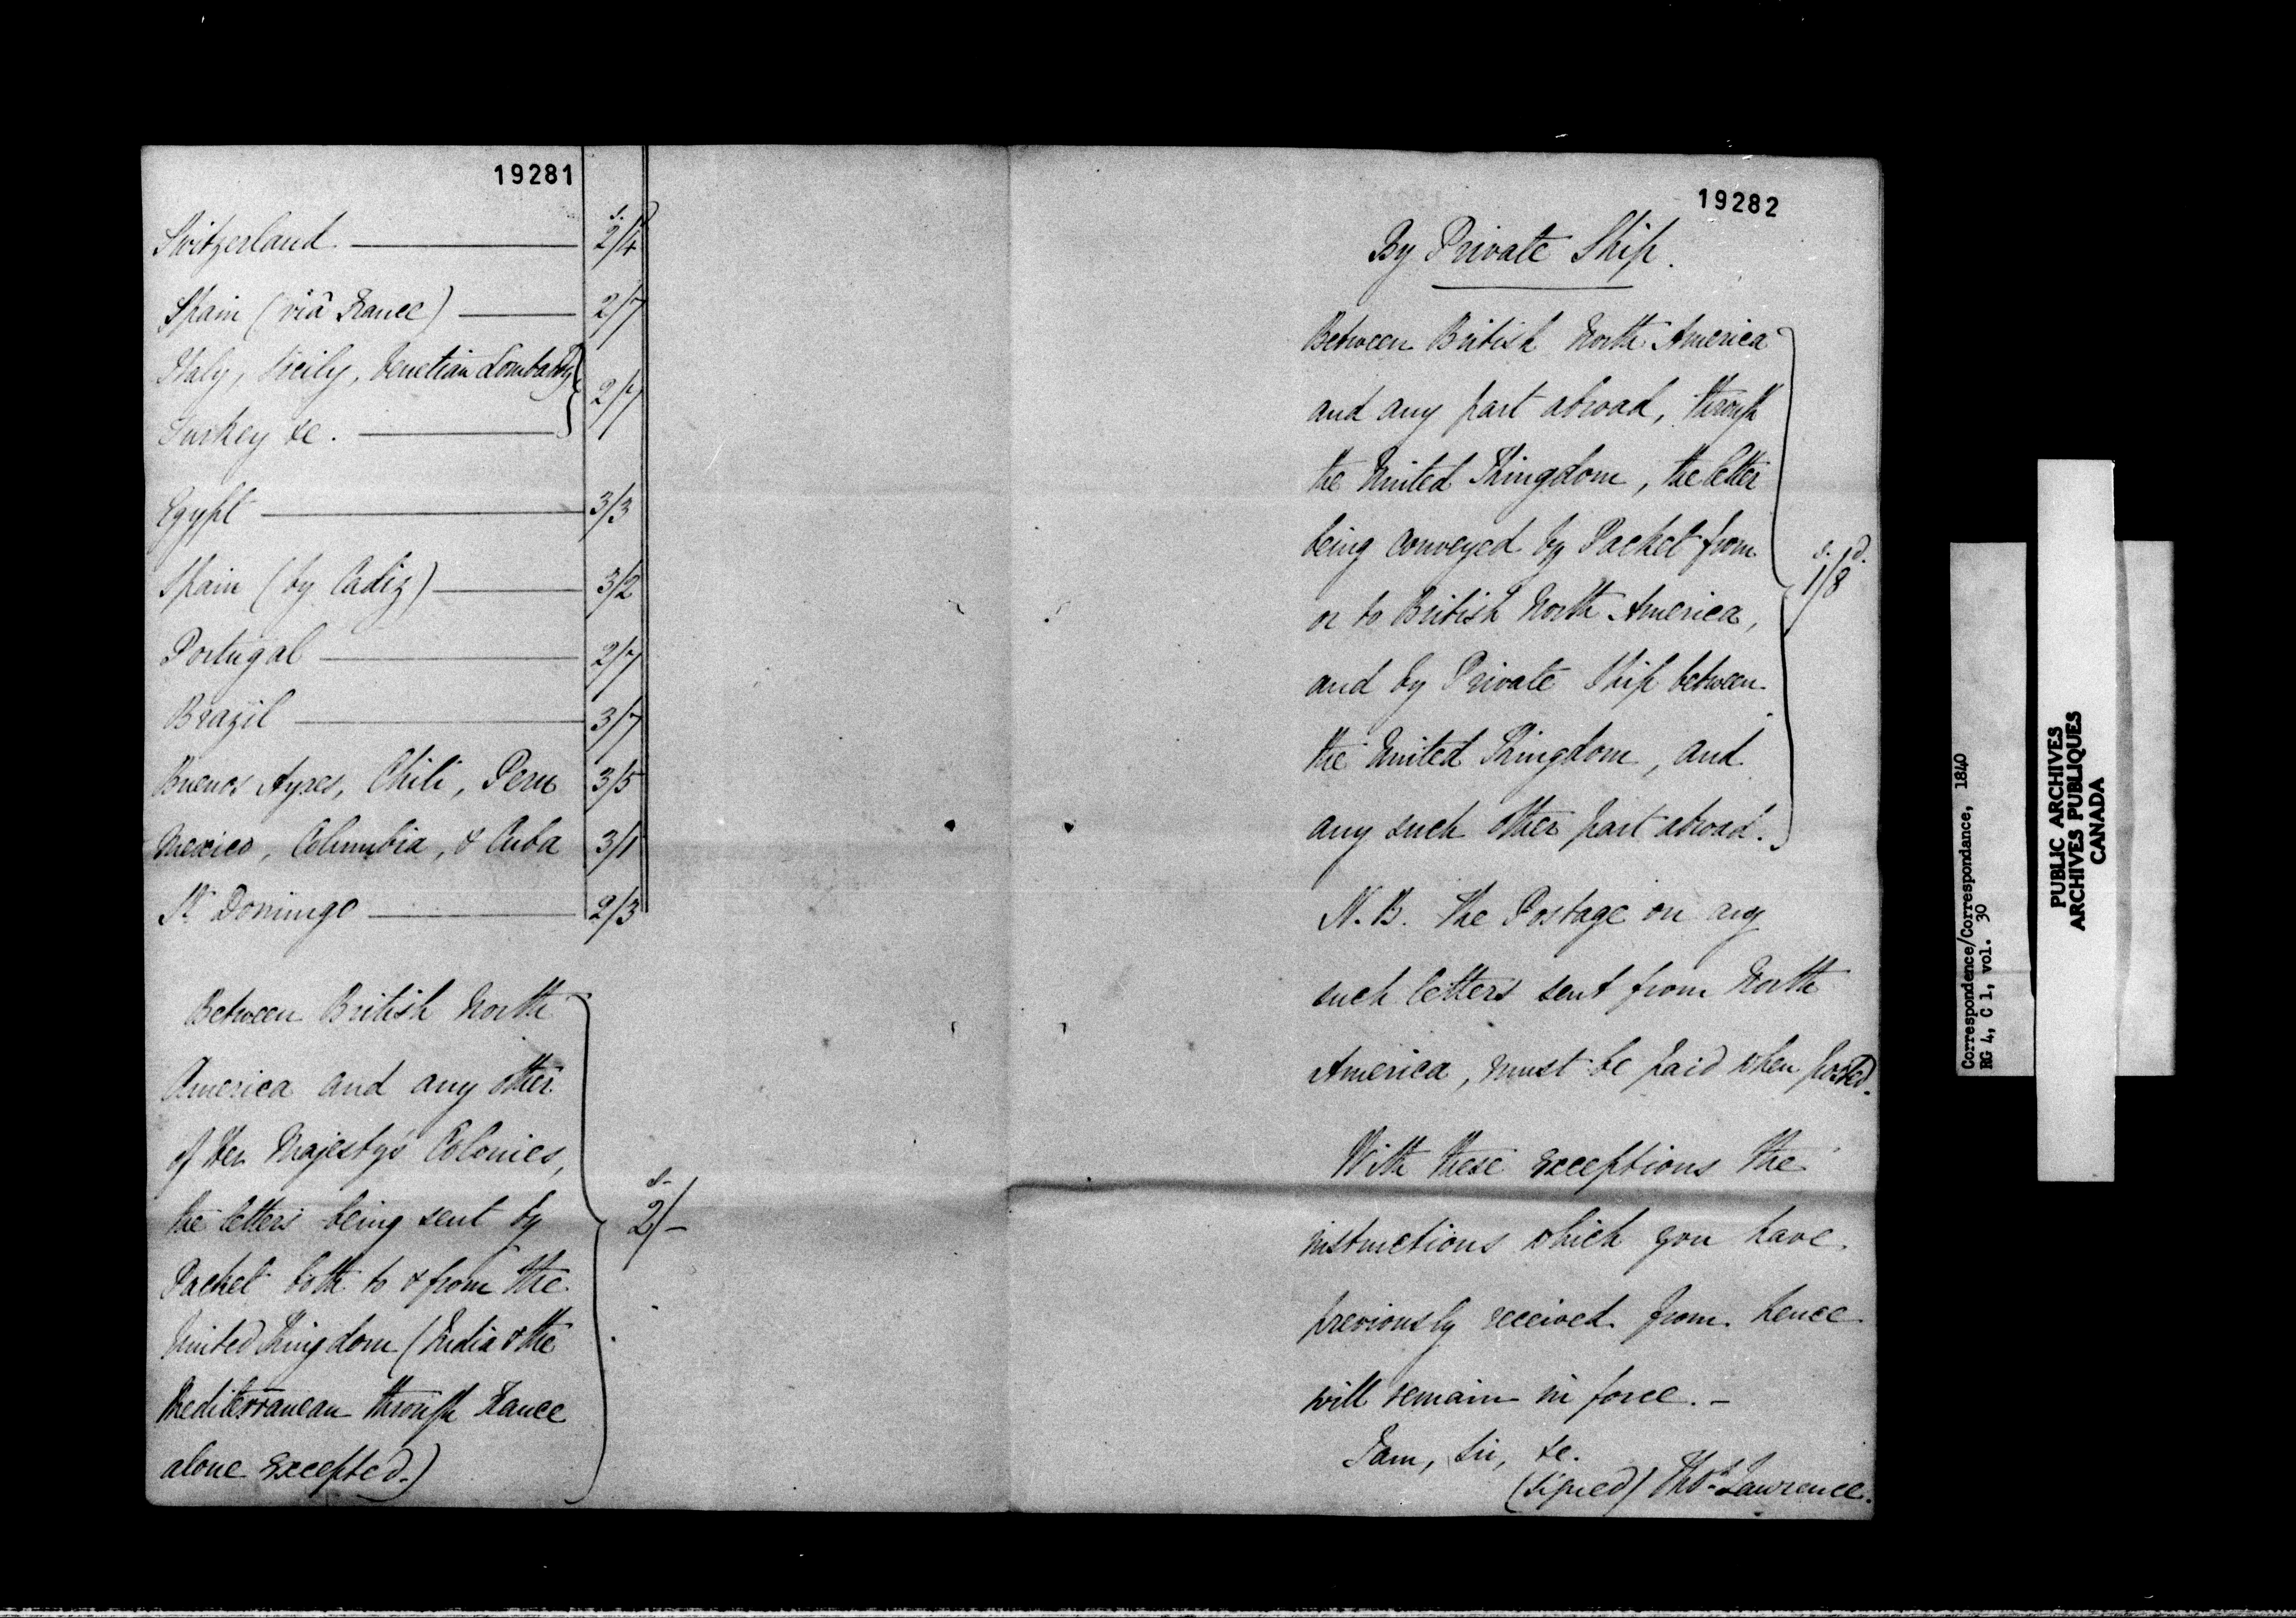 19281
s.
Switzerland 2/4
Spain (viâ France) 2/7
Italy, Sicily, Venetian Lombardy
2/7
Turkey &c.
Egypt 3/3
Spain (by Cadiz) 3/2
Portugal 2/7
Brazil 3/7
Buenos Ayres, Chili, Peru 3/5
Mexico, Columbia, & Cuba 3/1
St. Domingo 2/3
Between British North
America and any other
of Her Majesty's Colonies,
the letters being sent by
s.
2/-
Packet both to & from the
United Kingdom (India & the
Mediterranean through France
alone excepted.)
19282
By Private Ship.
Between British North America
and any part abroad, through
the United Kingdom, the letter
being conveyed by Packet from
s. d.
1/8
or to British North America,
and by Private Ship between
the United Kingdom, and
any such other part abroad.
N.B. The Postage on any
such letters sent from North
America, must be paid when posted.
With these exceptions the
instructions which you have
previously received from hence
will remain in force. -
I am, Sir, &c.
(signed) Thos. Lawrence.
Correspondence/Correspondance, 1840
RG 4, C 1, vol. 30
PUBLIC ARCHIVES
ARCHIVES PUBLIQUES
CANADA